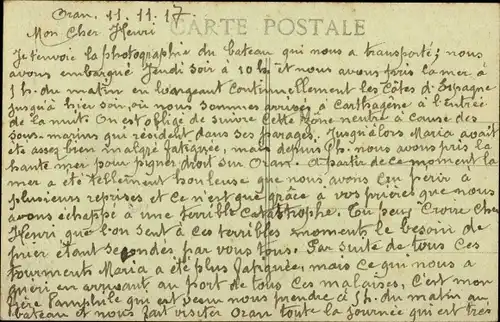 Oran. 11. 11. 17
CARTE POSTALE
Mon Cher Henri
Je t'envoie la photographie du bateau qui nous a transporté; nous
avons embarqué Jeudi soir à 10 h et nous avons pris la mer à
1 h. du matin en longeant continuellement les Côtes d'Espagne
jusqu'à hier soir, où nous sommes arrivés à Carthagène à l'entrée
de la nuit On est obligé de suivre cette Zone neutre à cause des
sous-marins qui résident dans ses parages. Jusqu'alors Maria avait
été assez bien malgré fatiguée, mais depuis h. nous avons pris la
haute mer pour droit sur Oran. A partir de ce moment la
mer a été tellement houleuse que nous avons cru périr à
plusieurs reprises et ce n'est que grâce à vos prières que nous
avons échappé à une terrible Catastrophe. Tu peux Croire cher
Henri que l'on sent à ces terribles moments le besoin de
prier étant secondés par vous tous. Par suite de tous ces
tourments Maria a été plus fatiguée, mais ce qui nous a
guéri en arrivant au port de tous ces malaises, C'est mon
frère Pamphile qui est venu nous prendre à 5 h. du matin au
bateau et nous fait visiter Oran toute la journée qui est très